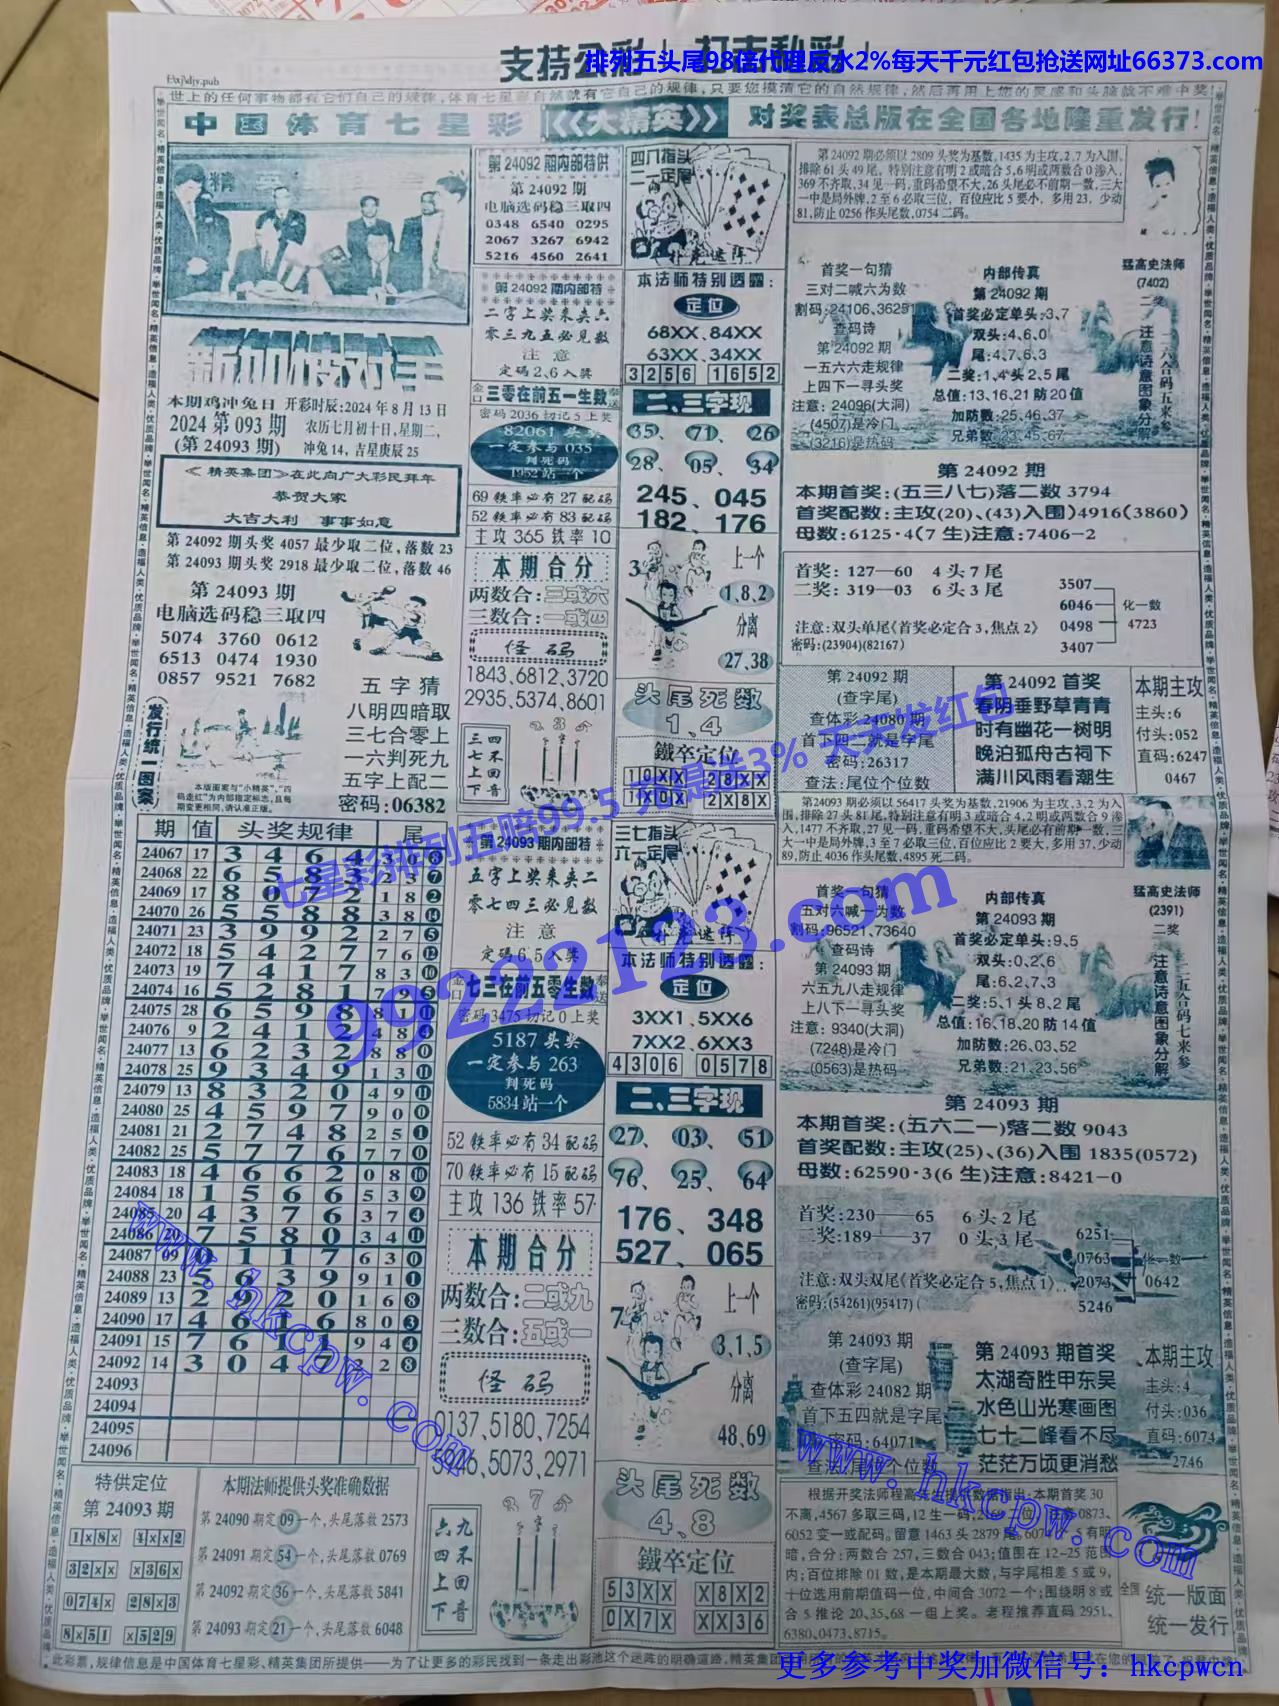 支持公彩 打击私彩
排列五头尾98倍代理反水2%每天千元红包抢送网址66373.com
F:\xj\djy.pub
世上的任何事物都有它们自己的规律,体育七星彩自然就有它自己的规律,只要您摸清它的自然规律,然后再用上您的灵感和头脑就不难中奖
中国体育七星彩 《大精英》 对奖表总版在全国各地隆重发行!
本期鸡冲兔日 开彩时辰:2024年8月13日
2024 第093期 农历七月初十日,星期二,
(第24093期) 冲兔14,吉星庚辰25
≪精英集团≫在此向广大彩民拜年
恭贺大家
大吉大利 事事如意
第24092期头奖4057最少取二位,落数23
第24093期头奖2918最少取二位,落数46
第24093期
电脑选码稳三取四
5074 3760 0612
6513 0474 1930
0857 9521 7682
五字猜
八明四暗取
三七合零上
一六判死九
五字上配二
密码:06382
发行统一图案
本版图案与"小精英","四
走红"为内部指定标志,且每
期变更相同,请认准正版。
期 值 头奖规律 尾
24067 17 3 4 6 4 4 3 0 8
24068 22 6 5 8 3 2 3 7
24069 17 8 0 7 2 1 8 2
24070 26 5 5 8 8 3 8 14
24071 23 3 9 9 2 2 7 5
24072 18 5 4 2 7 7 6 12
24073 19 7 4 1 7 8 3 10
24074 16 5 2 8 1 7 9 5
24075 28 6 5 9 8 8 1 11
24076 9 2 4 1 2 4 8 4
24077 13 6 2 3 2 8 8 0
24078 25 9 3 4 9 1 3 11
24079 13 8 3 2 0 4 9 11
24080 25 4 5 9 7 9 0 0
24081 21 2 7 4 8 2 5 1
24082 25 5 7 7 6 7 7 0
24083 18 4 6 6 2 0 8 10
24084 18 1 5 6 6 5 3 9
24085 20 4 3 7 6 3 7 4
24086 20 7 5 8 0 3 4 11
24087 09 0 1 1 7 6 3 0
24088 23 5 6 3 9 9 1 1
24089 13 2 9 2 0 1 6 8
24090 17 4 6 1 6 8 0 3
24091 15 7 6 1 1 9 4 4
24092 14 3 0 4 7 2 8
24093
24094
24095
24096
特供定位
第24093期
1×8× 4××2
32×× ×36×
074× 28×3
8×51 ×529
本期法师提供头奖准确数据
第24090期定09一个,头尾落数2573
第24091期定54一个,头尾落数0769
第24092期定36一个,头尾落数5841
第24093期定21一个,头尾落数6048
第24092期内部特供
第24092期
电脑选码稳三取四
0348 6540 0295
2067 3267 6942
5216 4560 2641
第24092期内部特
二字上奖来夹六
零三九五必见数
注意
定码2、6入奖
三零在前五一生数
密码2036切记5上奖
82061头奖
一定参与035
判死码
1952站一个
69铁率必有27配码
52铁率必有83配码
主攻365铁率10
本期合分
两数合:三或六
三数合:一或四
怪码
1843、6812、3720
2935、5374、8601
三七上下
四不回音
第24093期内部特
五字上奖来夹二
零七四三必见数
注意
定码6、5入奖
七三在前五零生数
密码3475切记0上奖
5187头奖
一定参与263
判死码
5834站一个
52铁率必有34配码
70铁率必有15配码
主攻136铁率57
本期合分
两数合:二或九
三数合:五或一
怪码
0137、5180、7254
5946、5073、2971
六四上下
九不回音
四八指头
二一定尾
扑克迷阵
本法师特别透露:
定位
68XX、84XX
63XX、34XX
3256 1652
二、三字现
35、71、26
28、05、34
245、045
182、176
上一个
1,8,2
分离
27,38
头尾死数
1、4
鐵卒定位
10XX 28XX
1X0X 2X8X
三七指头
六一定尾
扑克迷阵
本法师特别透露:
定位
3XX1、5XX6
7XX2、6XX3
4306 0578
二、三字现
27、03、51
76、25、64
176、348
527、065
上一个
3,1,5
分离
48,69
头尾死数
4、8
鐵卒定位
53XX X8X2
0X7X XX36
第24092期必须以2809头奖为基数,1435为主攻,2、7为入围,
排除61头49尾,特别注意有明2或暗合5,6明或两数合0渗入,
369不齐取,34见一码,重码希望不大,26头尾必不前期一数,三大
一中是局外牌,2至6必取三位,百位应比5要小,多用23,少动
81,防止0256作头尾数,0754二码。
首奖一句猜
三对二喊六为数
割码:24106、36251
查码诗
第24092期
一五六六走规律
上四下一寻头奖
注意:24096(大洞)
(4507)是冷门
(3216)是热码
内部传真
第24092期
首奖必定单头:3、7
双头:4、6、0
尾:4、7、6、3
二奖:1、4头2、5尾
总值:13、16、21防20值
加防数:25、46、37
兄弟数:23、45、67
猛高史法师
(7402)
二奖
一二六合码五来参
注意诗意图象分解
第24092期
本期首奖:(五三八七)落二数3794
首奖配数:主攻(20)、(43)入围)4916(3860)
母数:6125·4(7生)注意:7406-2
首奖:127—60 4头7尾
二奖:319—03 6头3尾
注意:双头单尾《首奖必定合3,焦点2》
密码:(23904)(82167)
3507
6046
0498
3407
化一数
4723
第24092期
(查字尾)
查体彩24080期
首下四二就是字尾
密码:26317
查法:尾位个位数
第24092首奖
春阴垂野草青青
时有幽花一树明
晚泊孤舟古祠下
满川风雨看潮生
本期主攻
主头:6
付头:052
直码:6247
0467
第24093期必须以56417头奖为基数,21906为主攻,3、2为入
围,排除27头81尾,特别注意有明3或暗合4,2明或两数合9渗
入,1477不齐取,27见一码,重码希望不大,头尾必有前期一数,三
大一中是局外牌,3至7必取三位,百位应比2要大,多用37,少动
89,防止4036作头尾数,4895死二码。
首奖一句猜
五对六喊一为数
割码:96521、73640
查码诗
第24093期
六五九八走规律
上八下一寻头奖
注意:9340(大洞)
(7248)是冷门
(0563)是热码
内部传真
第24093期
首奖必定单头:9、5
双头:0、2、6
尾:6、2、7、3
二奖:5、1头8、2尾
总值:16、18、20防14值
加防数:26、03、52
兄弟数:21、23、56
猛高史法师
(2391)
二奖
三二五合码七来参
注意诗意图象分解
第24093期
本期首奖:(五六二一)落二数9043
首奖配数:主攻(25)、(36)入围1835(0572)
母数:62590·3(6生)注意:8421-0
首奖:230—65 6头2尾
二奖:189—37 0头3尾
注意:双头双尾《首奖必定合5,焦点1》
密码:(54261)(95417)
6251
0763
2073
5246
化一数
0642
第24093期
(查字尾)
查体彩24082期
首下五四就是字尾
密码:64071
查法:尾位个位数
第24093期首奖
太湖奇胜甲东吴
水色山光寒画图
七十二峰看不尽
茫茫万顷更消愁
本期主攻
主头:4
付头:036
直码:6074
2746
根据开奖法师程高先生提供数据指出:本期首奖30
不离,4567多取三码,12生一码,
6052变一或配码。留意1463头2879尾,
暗,合分:两数合257,三数合043;值围在12-25范围
内;百位排除01数,是本期最大数,与字尾相差5或9,
十位选用前期值码一位,中间合3072一个;围绕明8或
合5推论20、35、68一组上奖。老程推荐直码2951、
6380、0473、8715。
全国
统一版面
统一发行
此彩票,规律信息是中国体育七星彩、精英集团所提供——为了让更多的彩民找到一条走出彩池这个迷阵的明确道路,精英集
更多参考中奖加微信号: hkcpwcn
七星彩排列五赔99.5 充是送3% 天天发红包
99222123.com
www.hkcpw.com
www.hkcpw.com